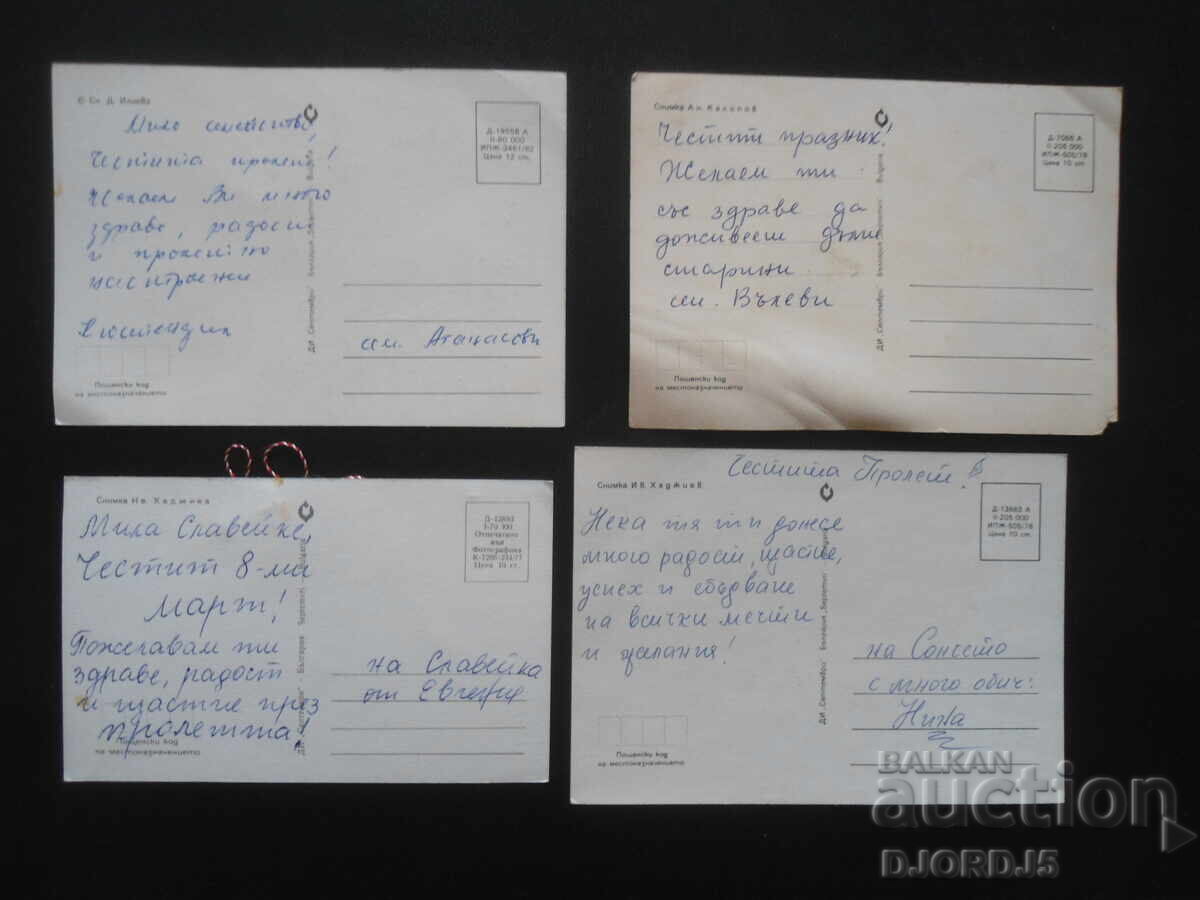 © Сн. Д. Илиева
Мило семейство!
Честита пролет!
Желаем Ви много
здраве, радост
и пролетно
настроение
Кюстендил
Пощенски код
на местоназначението
ДИ „Септември“ България Bulgaria
Д-19558 А
II-80 000
ИПЖ-3461/82
Цена 12 ст.
сем. Атанасови
Снимка Ал. Калопов
Честит празник!
Желаем ти
със здраве да
доживееш дълги
старини
сем. Вълеви
Пощенски код
на местоназначението
ДИ „Септември“ България Bulgaria
Д-7066 А
II-208 000
ИПЖ-505/78
Цена 10 ст.
Снимка Ив. Хаджиев
Мила Славейке,
Честит 8-ми
март!
Пожелавам ти
здраве, радост
и щастие през
пролетта!
Пощенски код
на местоназначението
ДИ „Септември“ България Bulgaria
Д-12893
I-70 100
Отпечатано
във
Фотографика
Цена 10 ст.
на Славейка
от Евгения
Честита Пролет!
Снимка Ив. Хаджиев
Нека тя ти донесе
много радост, щастие,
успех и сбъдване
на всички мечти
и желания!
Пощенски код
на местоназначението
ДИ „Септември“ България Bulgaria
Д-12883 А
II-205 000
ИПЖ-505/78
Цена 10 ст.
на Сонето
с много обич:
Нина
BALKAN
auction
DJORDJ5